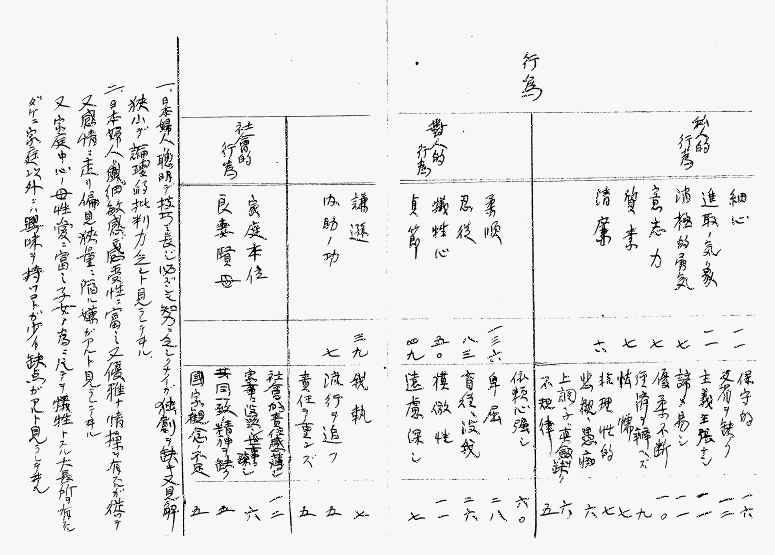 行為
私人的行為
細心 一一
進取ノ気象 一一
消極的勇気 七
意志力 七
質素 七
清廉 六
保守的 一六
主義主張ナシ 一一
諦メ易シ 一一
優柔不断 一〇
経済ヲ辨ヘズ 九
怯懦 七
理性的 七
悲観愚痴 六
上調子 六
不規律 五
對人的行為
柔順 一三六
忍従 八三
犠牲心 五〇
貞節 四九
謙遜 三九
内助ノ功 七
依頼心強シ 六〇
卑屈 二八
盲従、没我 二六
模倣性
遠慮深シ 七
我執 七
流行ヲ追フ 五
責任ヲ重ンズ 五
社會的行為
家庭本位
良妻賢母
社會的責任感薄シ 一二
家事ニ没頭シ世事ニ疎シ 六
共同一致精神ヲ缺ク 五
國家観念不足 五
一、日本婦人ハ聰明デ技巧ニ長ジ必ズシモ智ニ乏シクナイガ独創ヲ缺キ又見解
狭小デ論理的批判力ニ乏シト見ラレテヰル
二、日本婦人ハ繊細敏感デ感受性ニ富ミ又優雅ナ情操ヲ有スルガ
又感情ニ走リ偏見狭量ニ陥ル嫌ガアルト見ラレテヰル
又家庭中心ノ母性愛ニ富ミ子女ノ為ニ凡テヲ犠牲トスル大長所ヲ有スル
ダケニ家庭以外ニハ興味ヲ持ツコトガ少イ缺点ガアルト見ラレテヰル